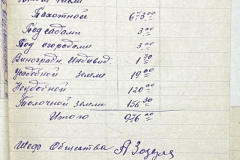 Пахотной 675 00
Под садами 3 00
Под огородами 3 00
Виноградн. Индивид. 1 50
Усадебной земли 19 00
Неудобной 120 00
Толочной земли 156 50
Итого 976 00
Общества